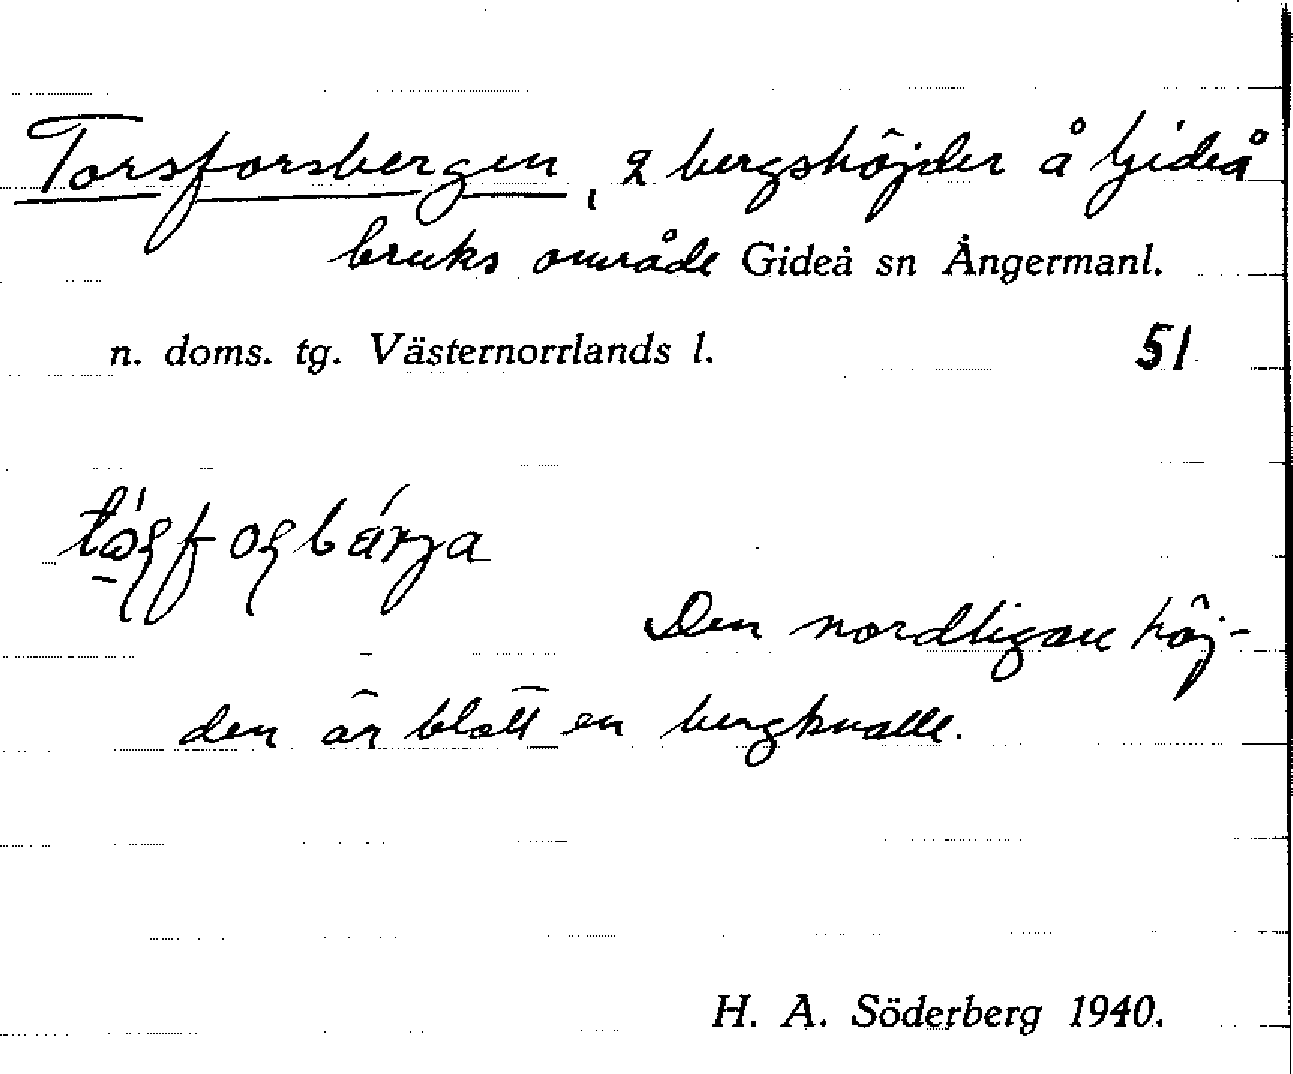 Torsforsbergen, 2 bergshöjder å Gideå
bruks område Gideå sn Ångermanl.
n. doms. tg. Västernorrlands l.
51
Den nordligare höj-
den är blott en bergknalle.
H. A. Söderberg 1940.